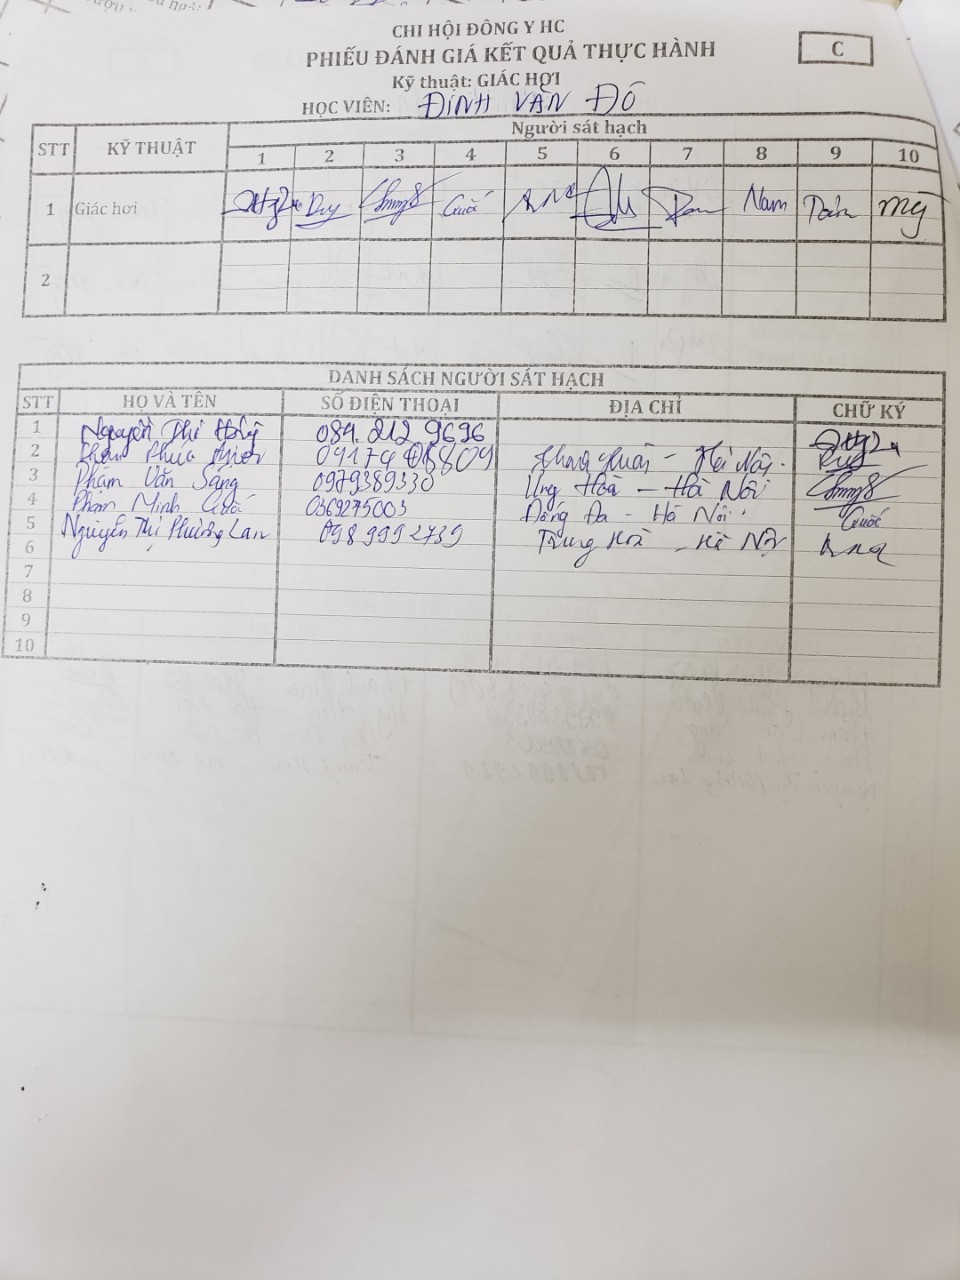 CHI HỘI ĐÔNG Y HC
PHIẾU ĐÁNH GIÁ KẾT QUẢ THỰC HÀNH
C
Kỹ thuật: GIÁC HƠI
HỌC VIÊN: ĐINH VĂN ĐÔ
STT KỸ THUẬT Người sát hạch
1 2 3 4 5 6 7 8 9 10
1 Giác hơi Duy Quốc Nam Toản Mỹ
2
DANH SÁCH NGƯỜI SÁT HẠCH
STT HỌ VÀ TÊN SỐ ĐIỆN THOẠI ĐỊA CHỈ CHỮ KÝ
1 Nguyễn Thị Hồng 084.212 9696
2 Hà Nội
3 Phạm Văn Sáng 0979389330 Ứng Hoà - Hà Nội
4 Phạm Minh Quốc 0369275003 Đống Đa - Hà Nội Quốc
5 Nguyễn Thị Phương Lan 098 999 2739 Trung Hoà - Hà Nội
6
7
8
9
10